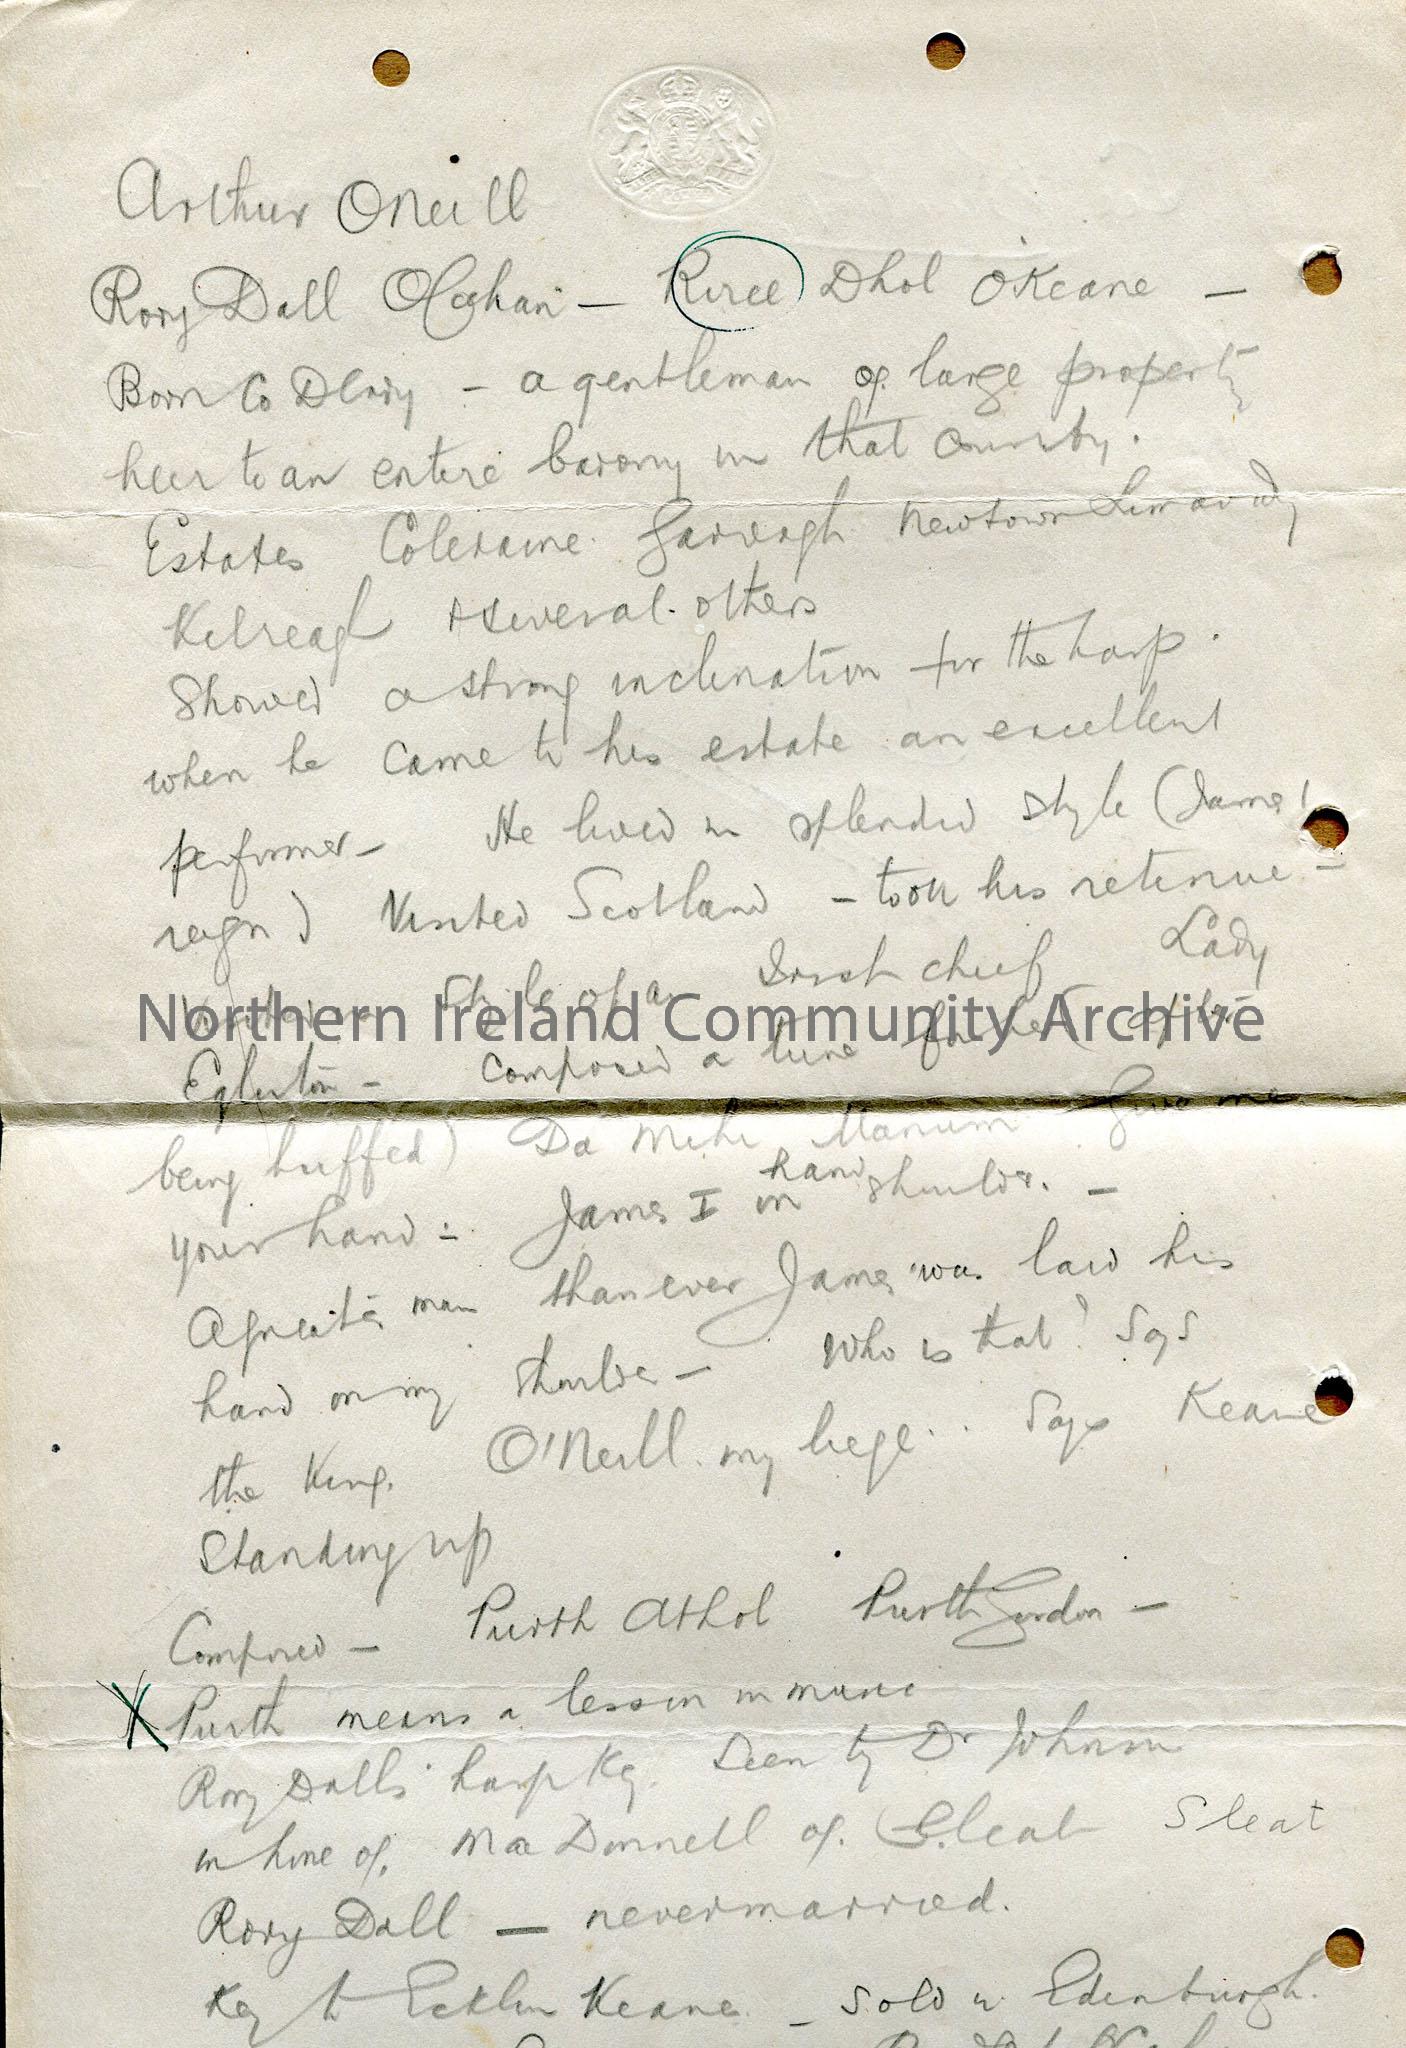 Arthur ONeill
Rory Dall OCahan – Ruree Dhol O'Keane –
Born Co Derry – a gentleman of large property
heir to an entire barony in that county.
Estates Coleraine Garvagh Newtown Limavady
Kilreagh & several others
Showed a strong inclination for the harp.
when he came to his estate an excellent
performer – He lived in splendid style (James
reign) Visited Scotland – took his retinue –
Visited in style of an Irish chief Lady
Northern Ireland Community Archive
Eglinton – composed a tune for her (after
being huffed) Da Mihi Manum Give me
your hand – James I hand on shoulder. –
A greater man than ever James was laid his
hand on my shoulder – Who is that? Says
the King. O'Neill my liege . . Says Keane
Standing up
Composed – Purth Athol Purth Gordon –
X Purth means a lesson in music
Rory Dalls harp Key. Seen by Dr Johnson
in home of. MacDonnell of. Sleat Sleat
Rory Dall – never married.
Key to Ecklin Keane – sold in Edenburgh.